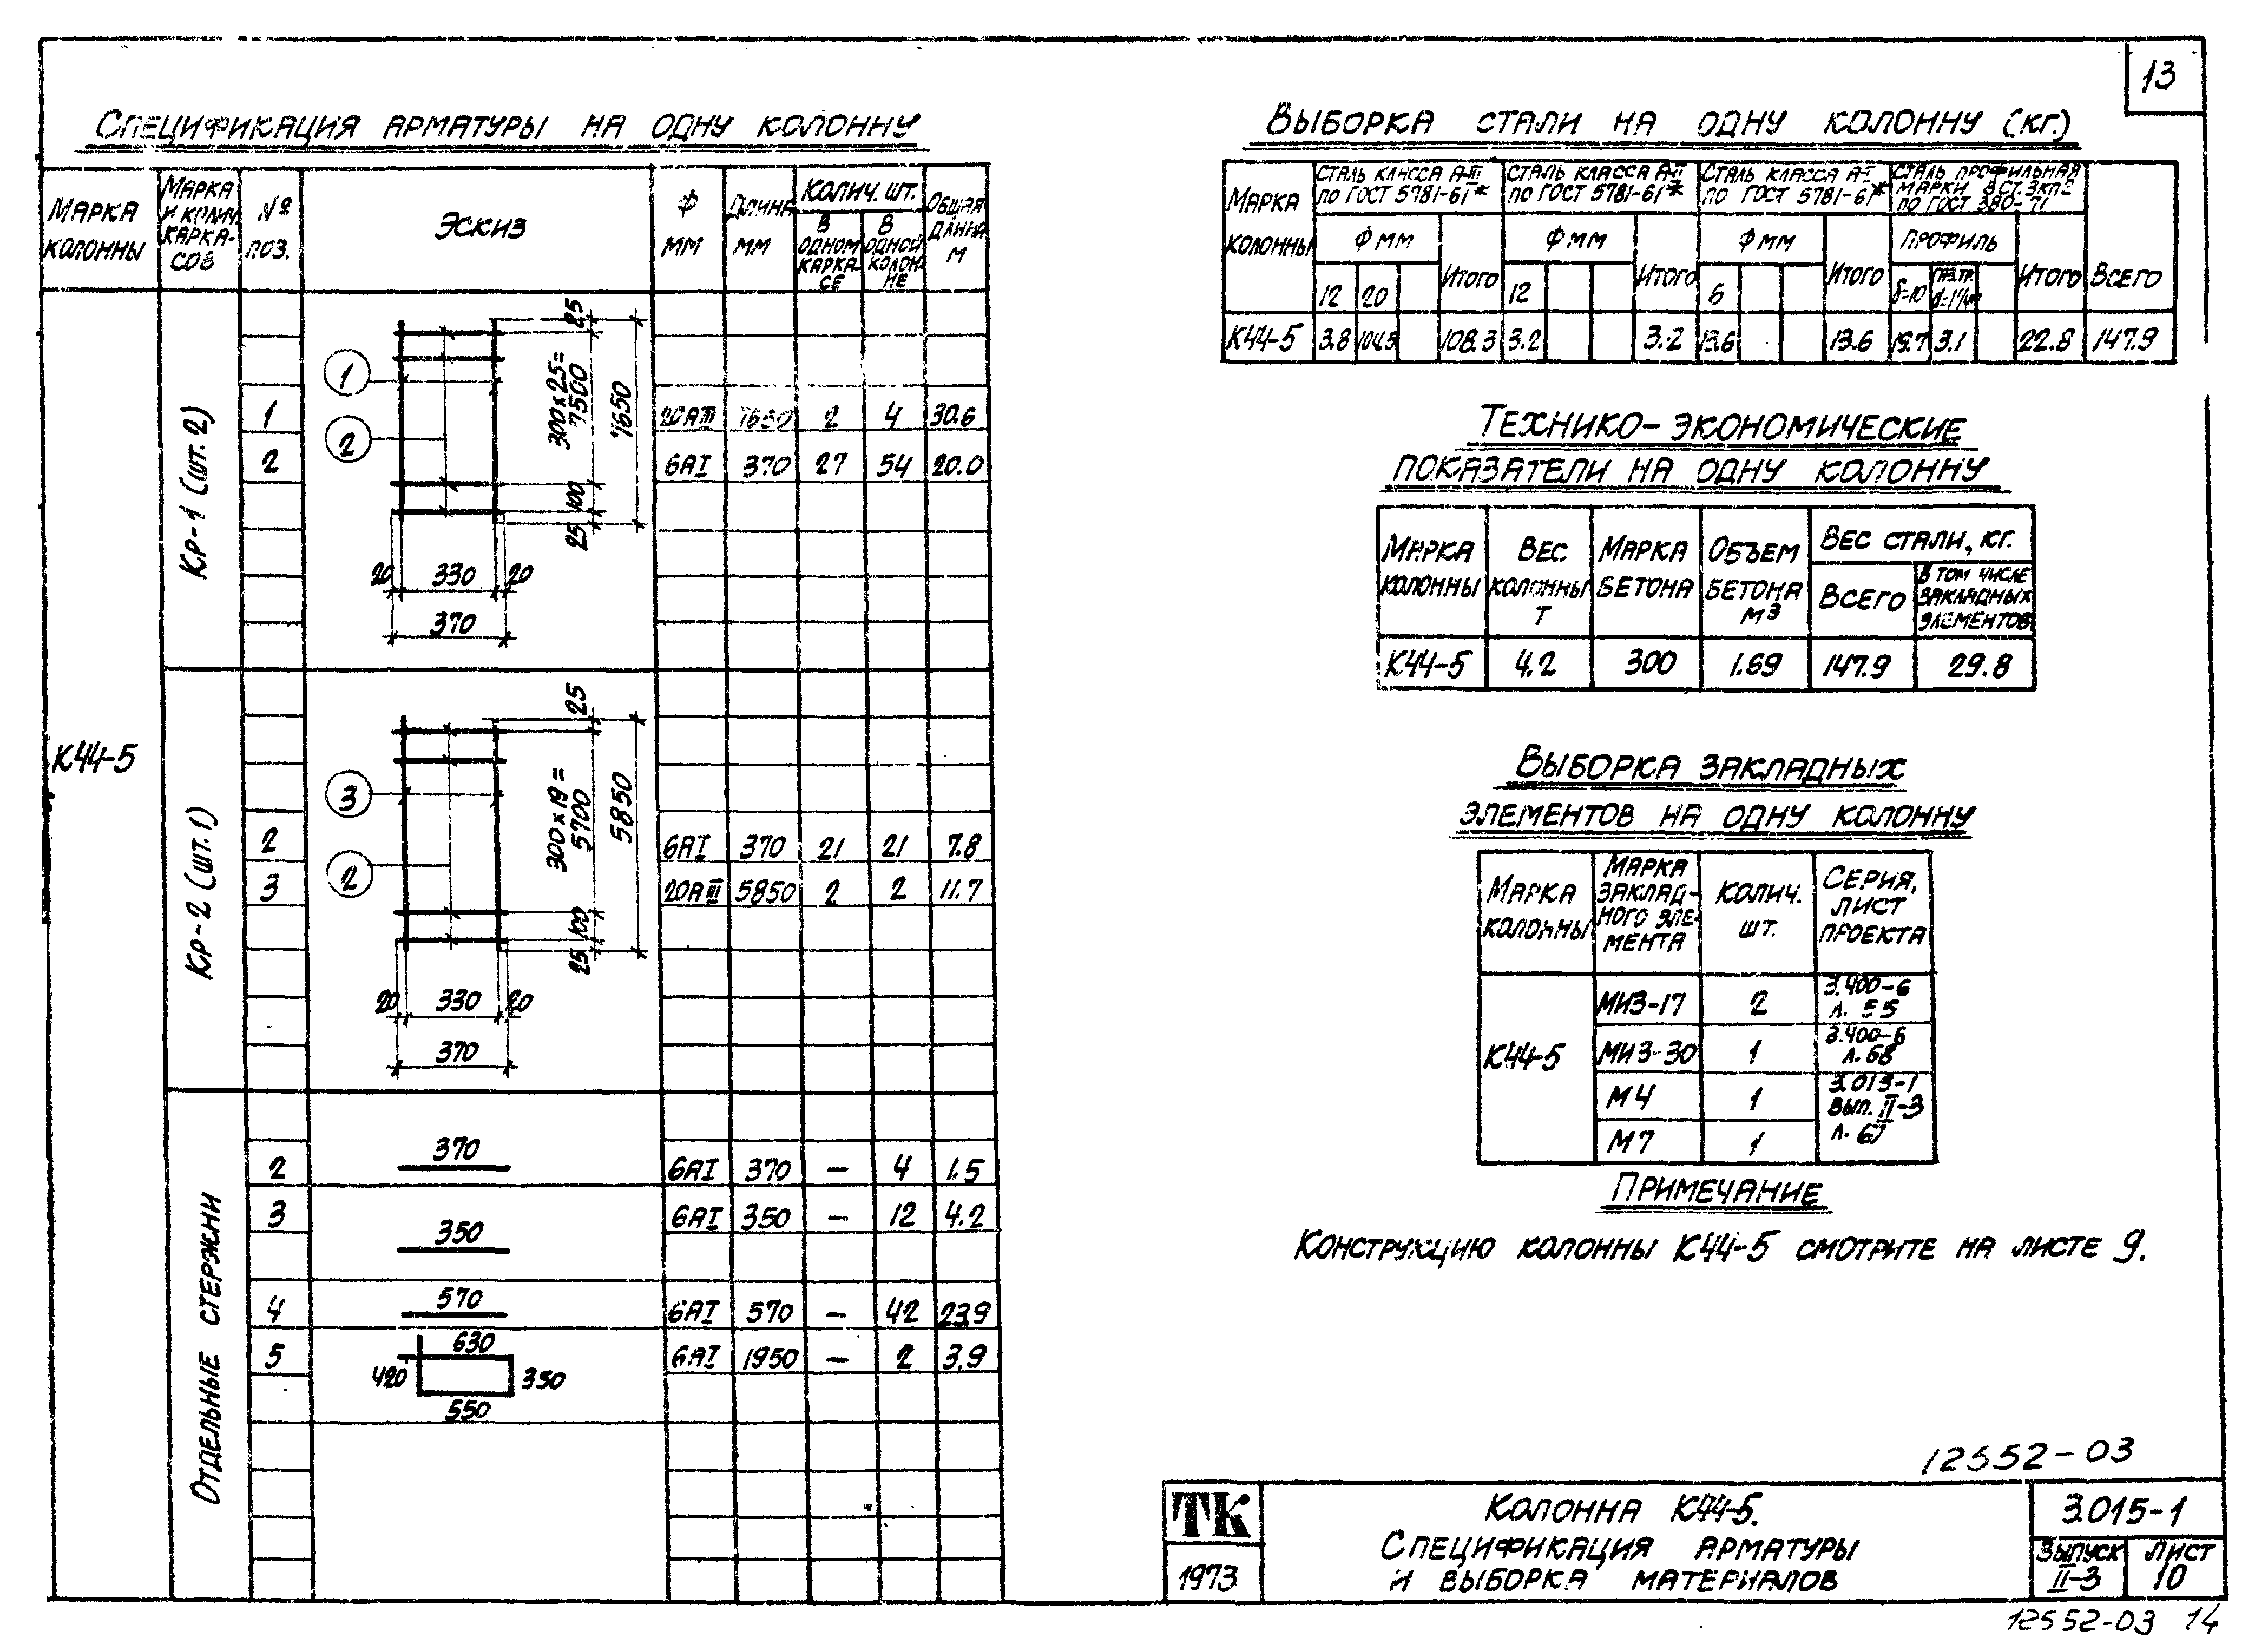 13
СПЕЦИФИКАЦИЯ АРМАТУРЫ НА ОДНУ КОЛОННУ
МАРКА КОЛОННЫ
МАРКА И КОЛИЧ. КАРКА-СОВ
№ ПОЗ.
ЭСКИЗ
Ф ММ
ДЛИНА ММ
КОЛИЧ. ШТ.
В ОДНОМ КАРКА-СЕ
В ОДНОЙ КОЛОН-НЕ
ОБЩАЯ ДЛИНА М
К44-5
КР-1 (ШТ. 2)
1 2
25
300x25=
7500
7650
100
25
20 330 20
370
1 20АIII 7650 2 4 30.6
2 6АI 370 27 54 20.0
КР-2 (ШТ. 1)
3 2
25
300x19=
5700
5850
100
25
20 330 20
370
2 6АI 370 21 21 7.8
3 20АIII 5850 2 2 11.7
ОТДЕЛЬНЫЕ СТЕРЖНИ
2 370 6АI 370 — 4 1.5
3 350 6АI 350 — 12 4.2
4 570 6АI 570 — 42 23.9
5 630 420 350 550 6АI 1950 — 2 3.9
ВЫБОРКА СТАЛИ НА ОДНУ КОЛОННУ (КГ.)
МАРКА КОЛОННЫ
СТАЛЬ КЛАССА А-III ПО ГОСТ 5781-61*
СТАЛЬ КЛАССА А-II ПО ГОСТ 5781-61*
СТАЛЬ КЛАССА А-I ПО ГОСТ 5781-61*
СТАЛЬ ПРОФИЛЬНАЯ МАРКИ ВСТ.3КП2 ПО ГОСТ 380-71
ВСЕГО
Ф ММ ИТОГО Ф ММ ИТОГО Ф ММ ИТОГО ПРОФИЛЬ ИТОГО
12 20 12 6 δ=10
К44-5 3.8 104.5 108.3 3.2 3.2 13.6 13.6 19.7 3.1 22.8 147.9
ТЕХНИКО-ЭКОНОМИЧЕСКИЕ
ПОКАЗАТЕЛИ НА ОДНУ КОЛОННУ
МАРКА КОЛОННЫ
ВЕС КОЛОННЫ Т
МАРКА БЕТОНА
ОБЪЕМ БЕТОНА М3
ВЕС СТАЛИ, КГ.
ВСЕГО
В ТОМ ЧИСЛЕ ЗАКЛАДНЫХ ЭЛЕМЕНТОВ
К44-5 4.2 300 1.69 147.9 29.8
ВЫБОРКА ЗАКЛАДНЫХ
ЭЛЕМЕНТОВ НА ОДНУ КОЛОННУ
МАРКА КОЛОННЫ
МАРКА ЗАКЛАД-НОГО ЭЛЕ-МЕНТА
КОЛИЧ. ШТ.
СЕРИЯ, ЛИСТ ПРОЕКТА
К44-5
МИ3-17 2 3.400-6 Л. 55
МИ3-30 1 3.400-6 Л. 68
М4 1
М7 1
3.015-1
ВЫП. II-3
Л. 67
ПРИМЕЧАНИЕ
КОНСТРУКЦИЮ КОЛОННЫ К44-5 СМОТРИТЕ НА ЛИСТЕ 9.
12552-03
ТК
1973
КОЛОННА К44-5.
СПЕЦИФИКАЦИЯ АРМАТУРЫ
И ВЫБОРКА МАТЕРИАЛОВ
3.015-1
ВЫПУСК II-3
ЛИСТ 10
12552-03 14